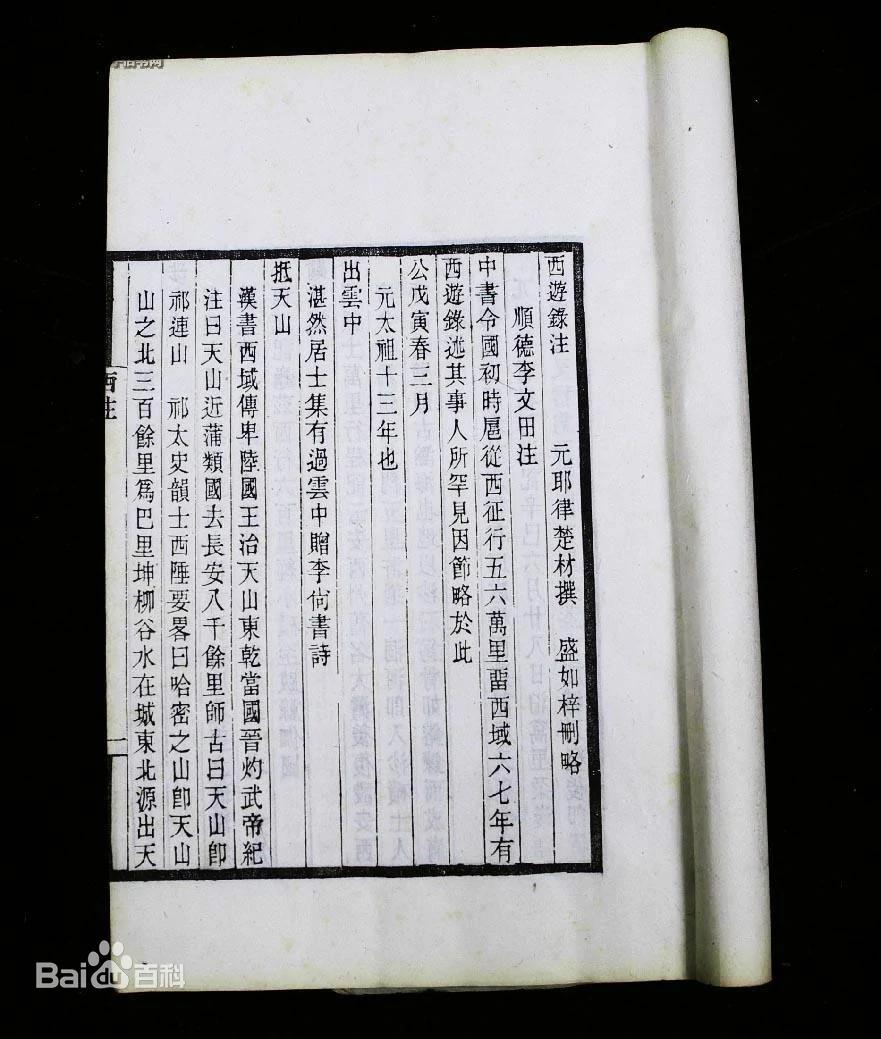 西遊錄注　元耶律楚材撰　盛如梓刪略
順德李文田注
中書令國初時扈從西征行五六萬里畱西域六七年有
西遊錄述其事人所罕見因節略於此
公戊寅春三月
元太祖十三年也
出雲中
湛然居士集有過雲中贈李尙書詩
抵天山
漢書西域傳卑陸國王治天山東乾當國晉灼武帝紀
注曰天山近蒲類國去長安八千餘里師古曰天山卽
祁連山　祁太史韻士西陲要畧曰哈密之山卽天山
山之北三百餘里爲巴里坤柳谷水在城東北源出天
西注
一
Baidu百科